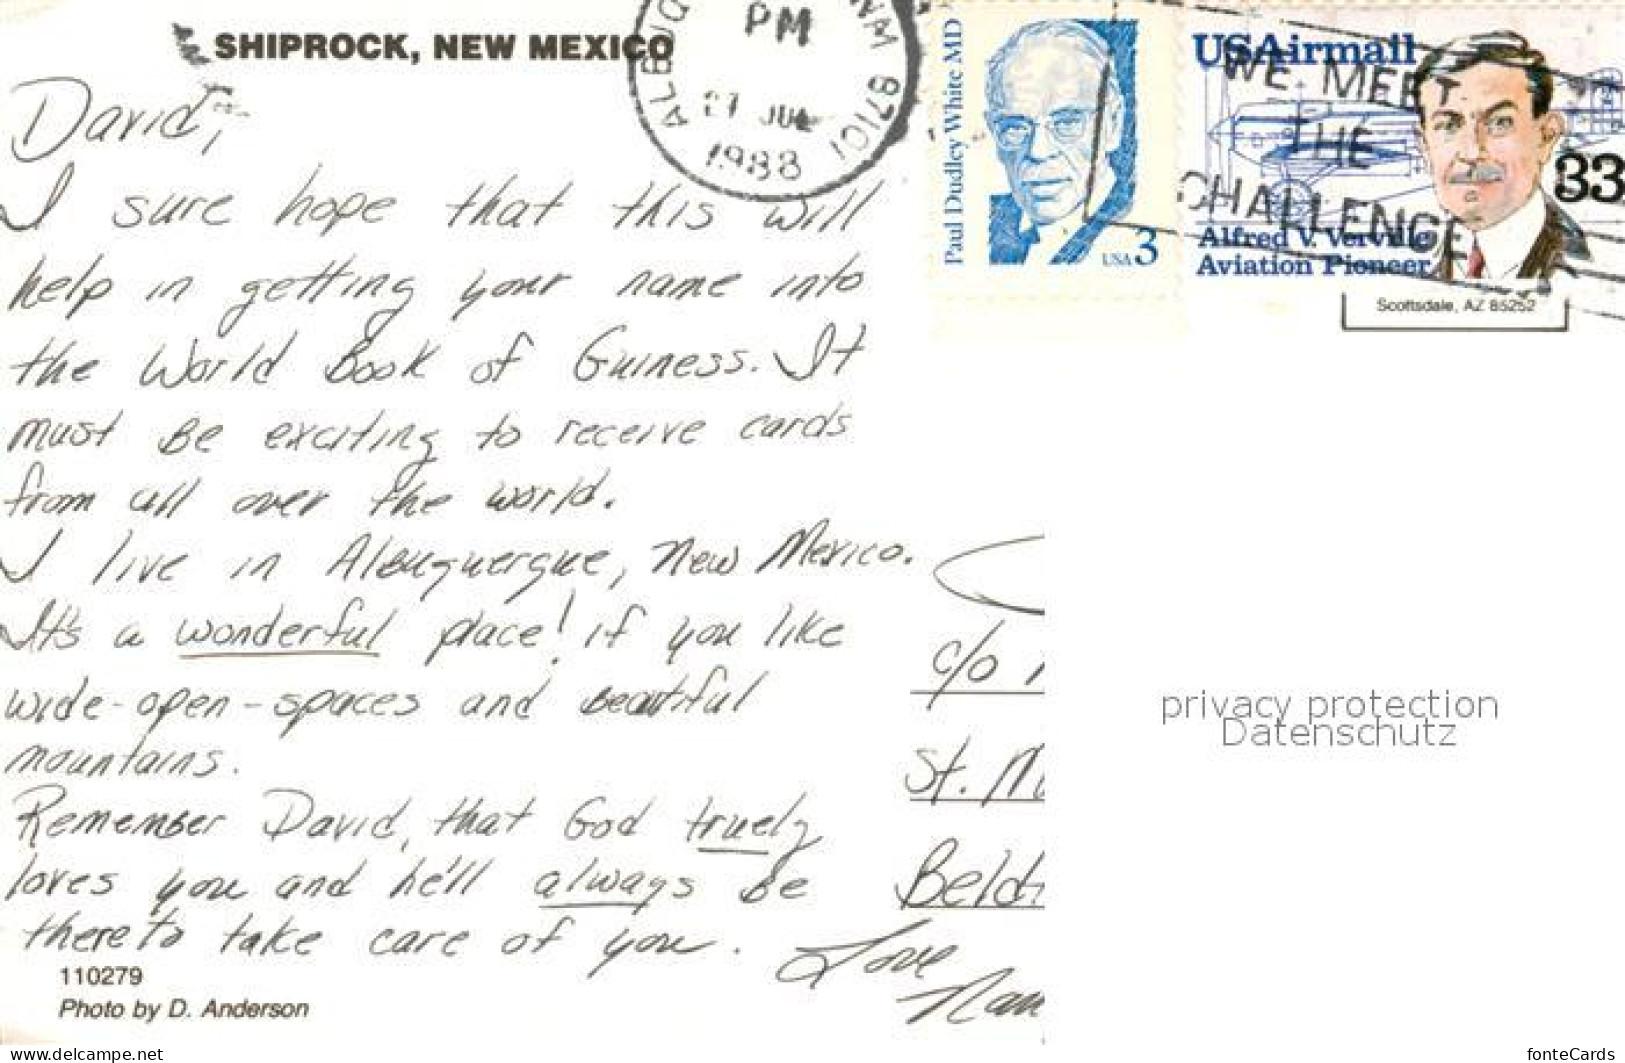 SHIPROCK, NEW MEXICO
David,
I sure hope that this will
help in getting your name into
the World Book of Guiness. It
must be exciting to receive cards
from all over the world.
I live in Albuquerque, New Mexico.
It's a wonderful place! if you like
wide-open-spaces and beautiful
mountains.
Remember David, that God truely
loves you and he'll always be
there to take care of you.
Love
110279
Photo by D. Anderson
PM
27 JUL
1988
87101
Paul Dudley White MD
USA 3
USAirmail
33
Alfred V. Verville
Aviation Pioneer
WE MEET
THE
CHALLENGE
Scottsdale, AZ 85252
c/o
St. M
privacy protection
Datenschutz
www.delcampe.net
fonteCards